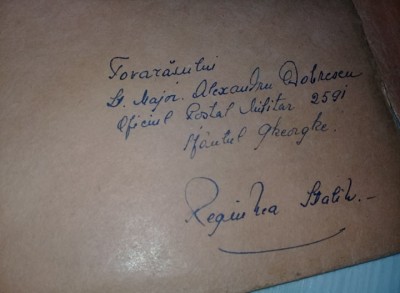 Tovarăsului
Lt. Major. Alexandru Dobrescu
Oficiul Postal Militar 2591
Sfântul Gheorghe.
Regiunea Stalin.-